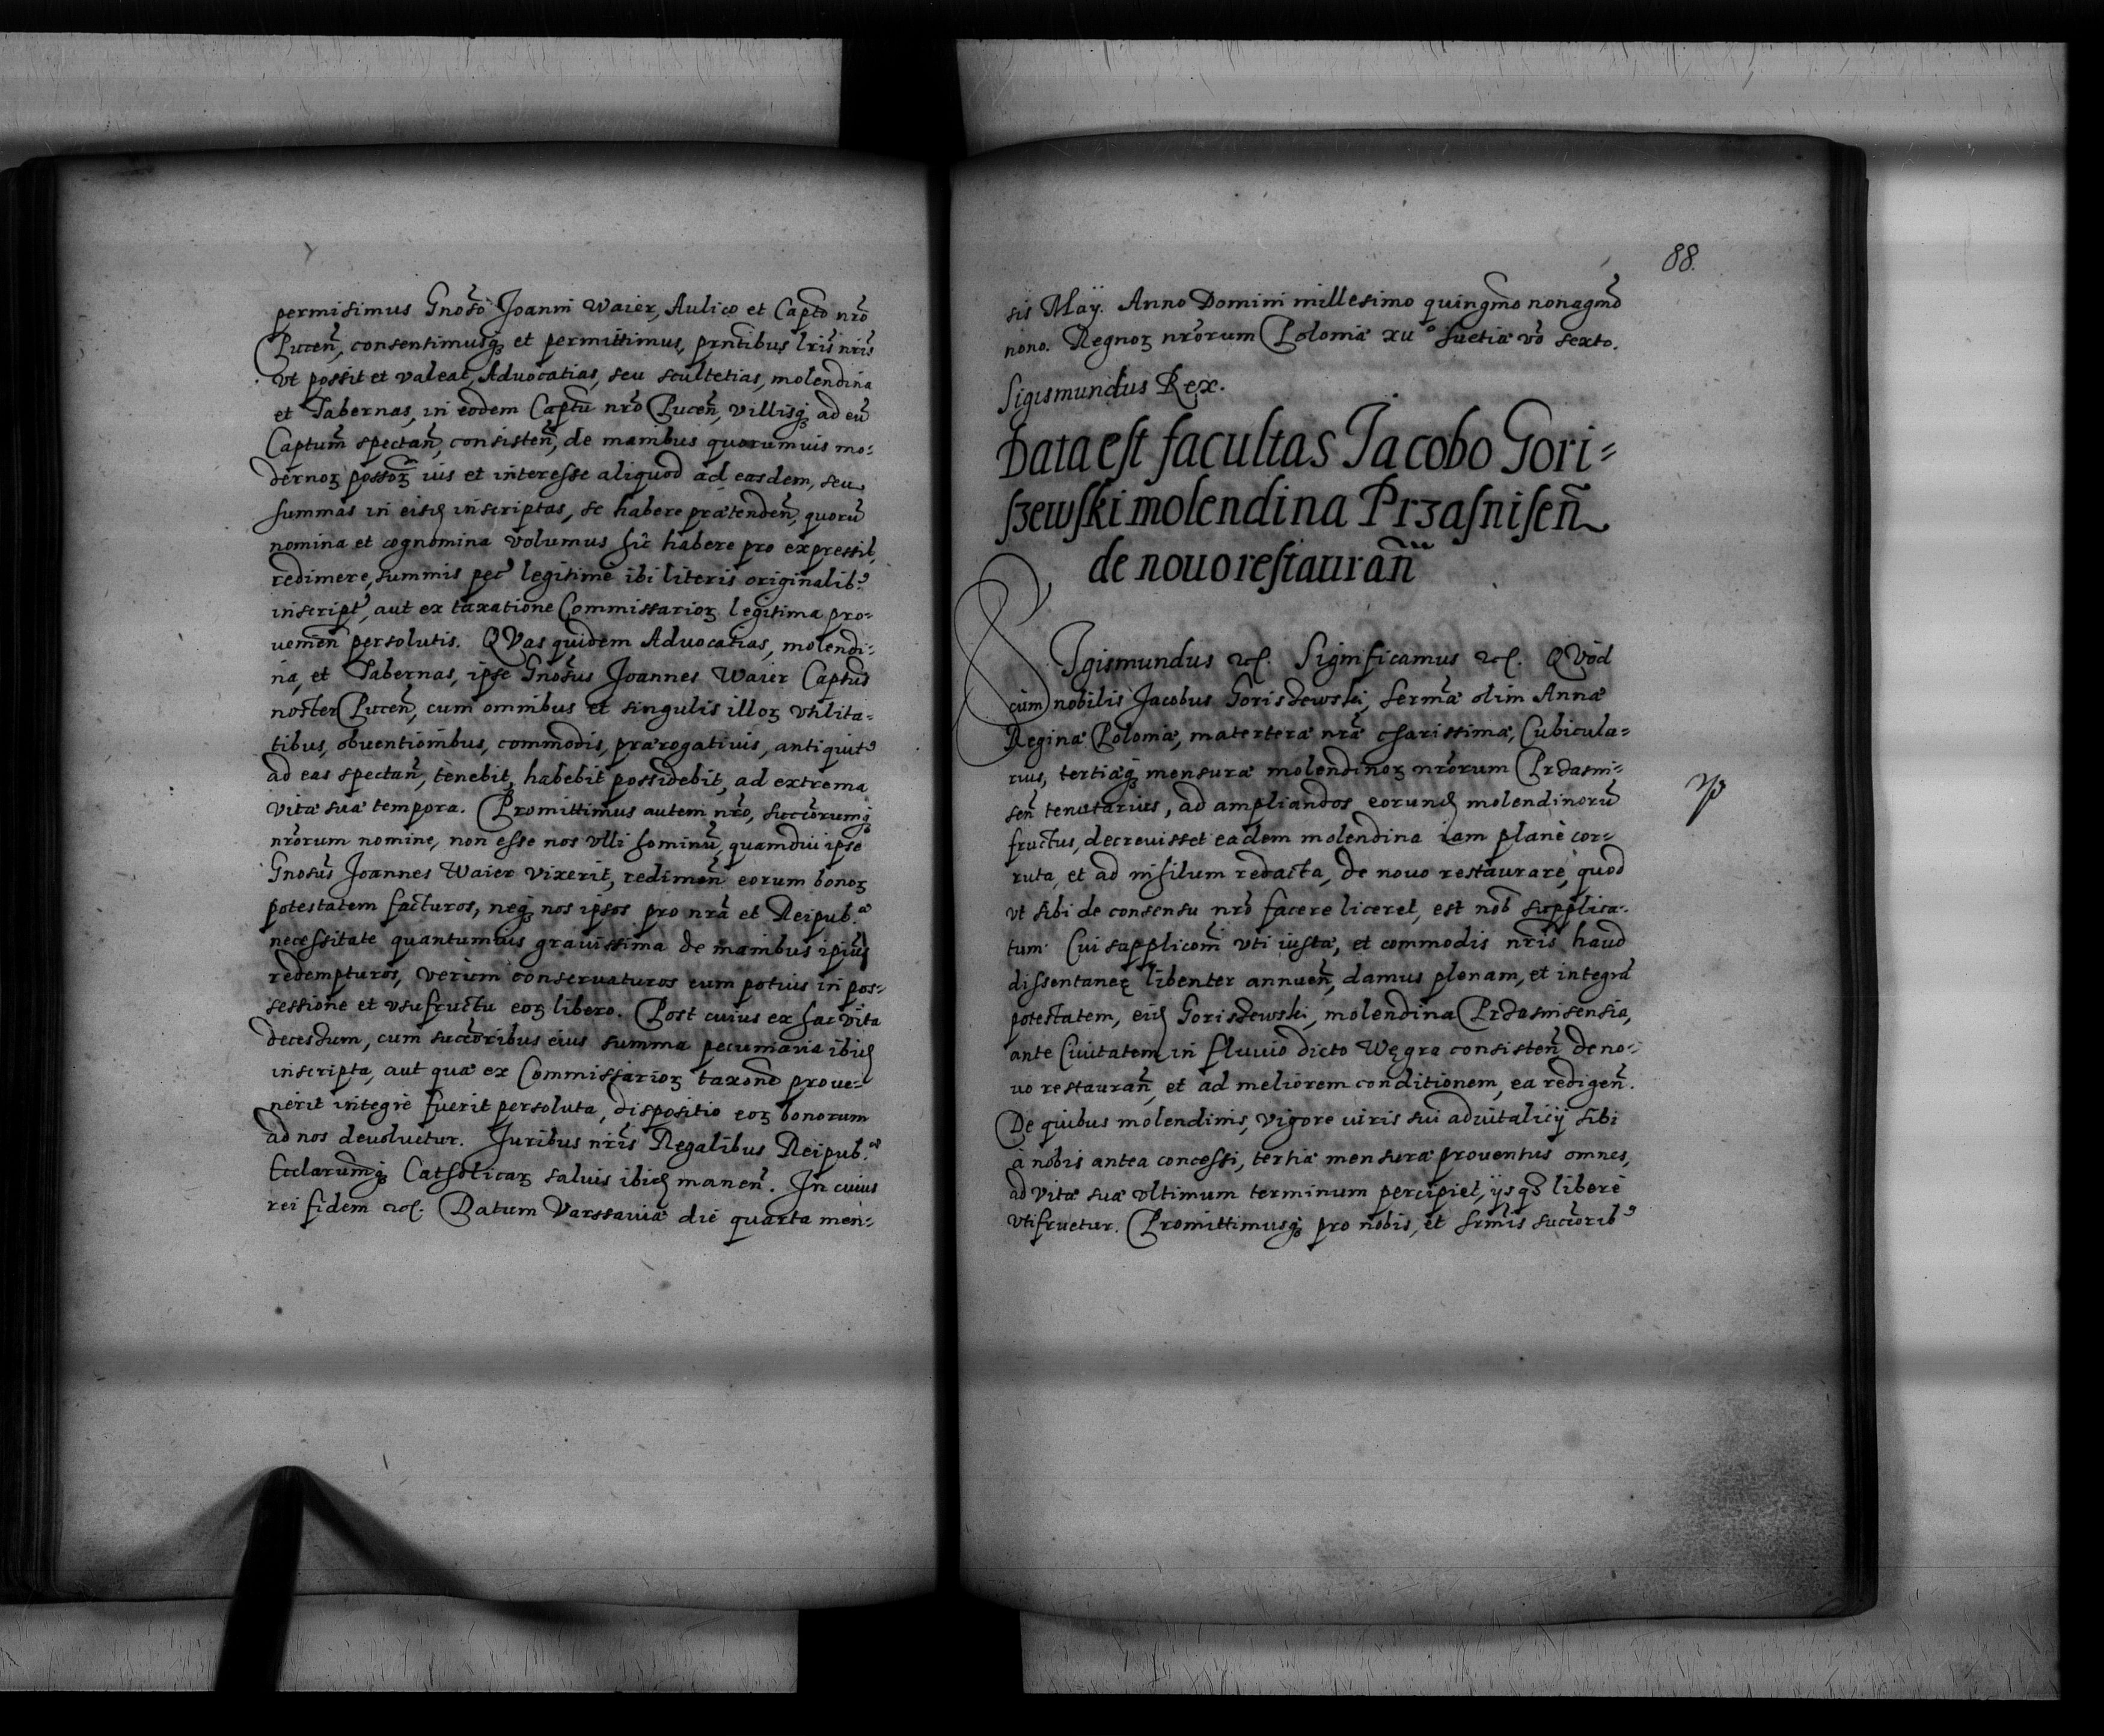 permisimus Gnoso Joanni Waier, Aulico et Capto nro
Pucen, consentimusq et permittimus, prntibus lris nris
vt possit et valeat, Advocatias, seu scultetias, molendina
et Tabernas, in eodem Captu nro Pucen, villisq ad eu
Captum spectan, consisten, de manibus quorumuis mo-
dernoꝝ possoꝝ ius et interesse aliquod ad easdem, seu
summas in eisd inscriptas, se habere prætenden, quoru
nomina et cognomina volumus hic habere pro expressis,
redimere, summis pec legitime ibi literis originalib9
inscript, aut ex taxatione Commissarioꝝ legitima pro-
uenien persolutis. QVas quidem Advocatias, molendi-
na, et Tabernas, ipse Gnosus Joannes Waier Captus
noster Pucen, cum omnibus et singulis illoꝝ vtilita-
tibus, obuentionibus, commodis, prærogatiuis, antiquit9
ad eas spectan, tenebit, habebit possidebit, ad extrema
vitæ suæ tempora. Promittimus autem nro, succorumq
nrorum nomine, non esse nos vlli hominu, quamdiu ipse
Gnosus Joannes Waier vixerit, redimen eorum bonoꝝ
potestatem facturos, neq nos ipsos pro nra et Reipub.æ
necessitate quantumuis grauissima de manibus ipius
redempturos, verum conseruaturos eum potius in pos-
sessione et vsufructu eoꝝ libero. Post cuius ex hac vita
decessum, cum succoribus eius summa pecuniaria ibid
inscripta, aut quæ ex Commissarioꝝ taxone proue-
nerit integrè fuerit persoluta, dispositio eoꝝ bonorum
ad nos deuoluetur. Juribus nris Regalibus Reipub.æ
Ecclarumq Catholicaꝝ saluis ibid manen. In cuius
rei fidem etc. Datum Varssauiæ die quarta men-
88.
sis Maÿ. Anno Domini millesimo quingmo nonagmo
nono. Regnoꝝ nrorum Poloniæ xii° Suetiæ vo sexto.
Sigismundus Rex.
Data est facultas Jacobo Gori-
szewski molendina Przasnisen
de nouo restauran
SIgismundus etc. Significamus etc. QVod
cum nobilis Jacobus Goriszewski, Sermæ olim Annæ
Reginæ Poloniæ, materteræ nræ charissimæ, Cubicula-
rius, tertiæq mensuræ molendinoꝝ nrorum Przasni-
sen tenutarius, ad ampliandos eorund molendinoru
fructus, decreuisset eadem molendina iam planè cor-
ruta, et ad nihilum redacta, de nouo restaurare, quod
vt sibi de consensu nro facere liceret, est nob supplica-
tum. Cui suppliconi vti iustæ, et commodis nris haud
dissentaneę libenter annuen, damus plenam, et integra
potestatem, eid Goriszewski, molendina Przasnisensia,
ante Ciuitatem in fluuio dicto Węgra consisten de no-
uo restauran, et ad meliorem conditionem, ea redigen.
De quibus molendinis, vigore iuris sui aduitalicÿ sibi
à nobis antea concessi, tertiæ mensuræ prouentus omnes,
ad vitæ suæ vltimum terminum percipiet, ijsq3 liberè
vtifruetur. Promittimusq pro nobis, et srmis succorib9